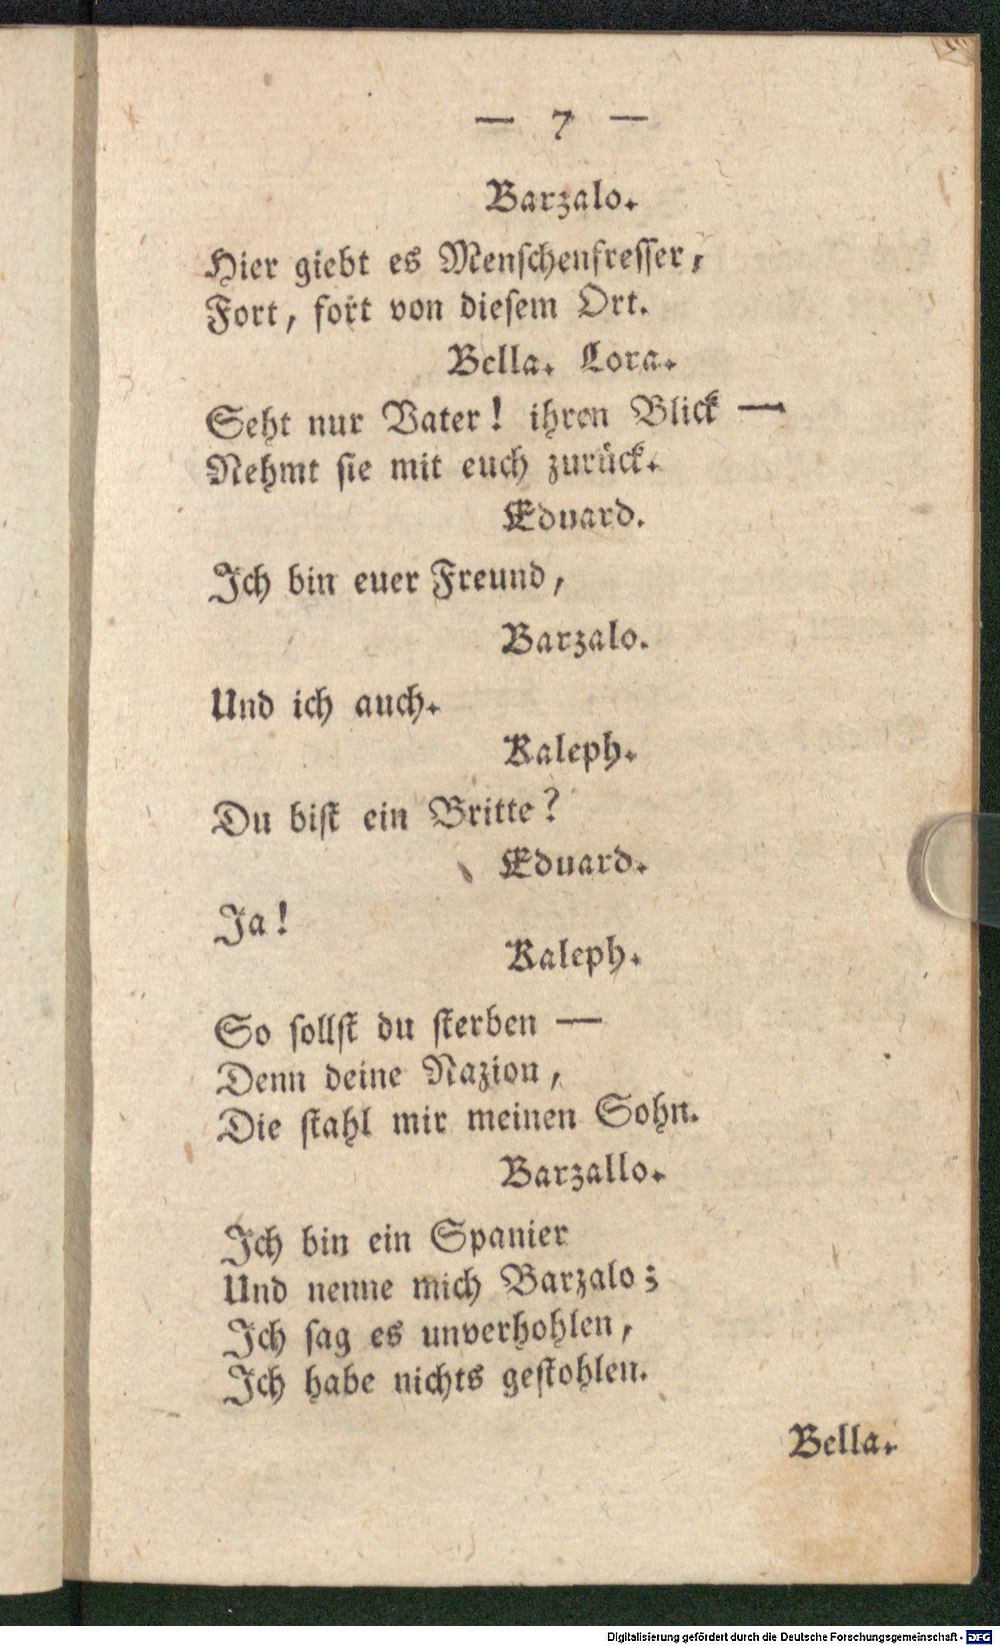 — 7 —
Barzalo.
Hier giebt es Menschenfresser,
Fort, fort von diesem Ort.
Bella. Lora.
Seht nur Vater! ihren Blick —
Nehmt sie mit euch zurück.
Eduard.
Ich bin euer Freund,
Barzalo.
Und ich auch.
Kaleph.
Du bist ein Britte?
Eduard.
Ja!
Kaleph.
So sollst du sterben —
Denn deine Nazion,
Die stahl mir meinen Sohn.
Barzallo.
Ich bin ein Spanier
Und nenne mich Barzalo;
Ich sag es unverhohlen,
Ich habe nichts gestohlen.
Bella.
Digitalisierung gefördert durch die Deutsche Forschungsgemeinschaft - DFG